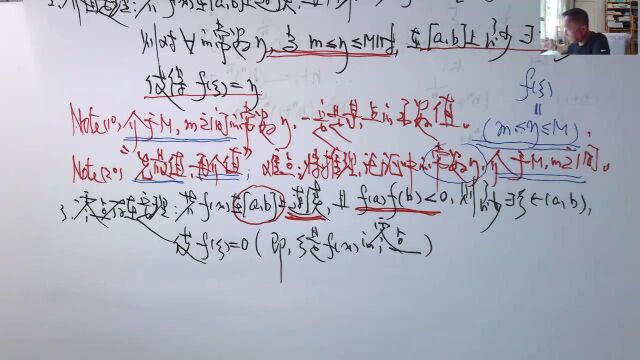 2.介值定理:若f(x)在[a,b]上
则对∀的常数η,当m≤η≤M时,在[a,b]上
使得f(ξ)=η.
f(ξ)
=
(m≤η≤M).
Note(1),介于M,m之间的常数η,一定是某点的函数值。
Note(2),"先有值,再介值";难点:将推理、论证中的常数η,介于M,m之间。
3.零点存在定理:若f(x)在[a,b]上连续,且f(a)f(b)<0,则 ∃ξ∈(a,b),
使f(ξ)=0(即,ξ是f(x)的零点)